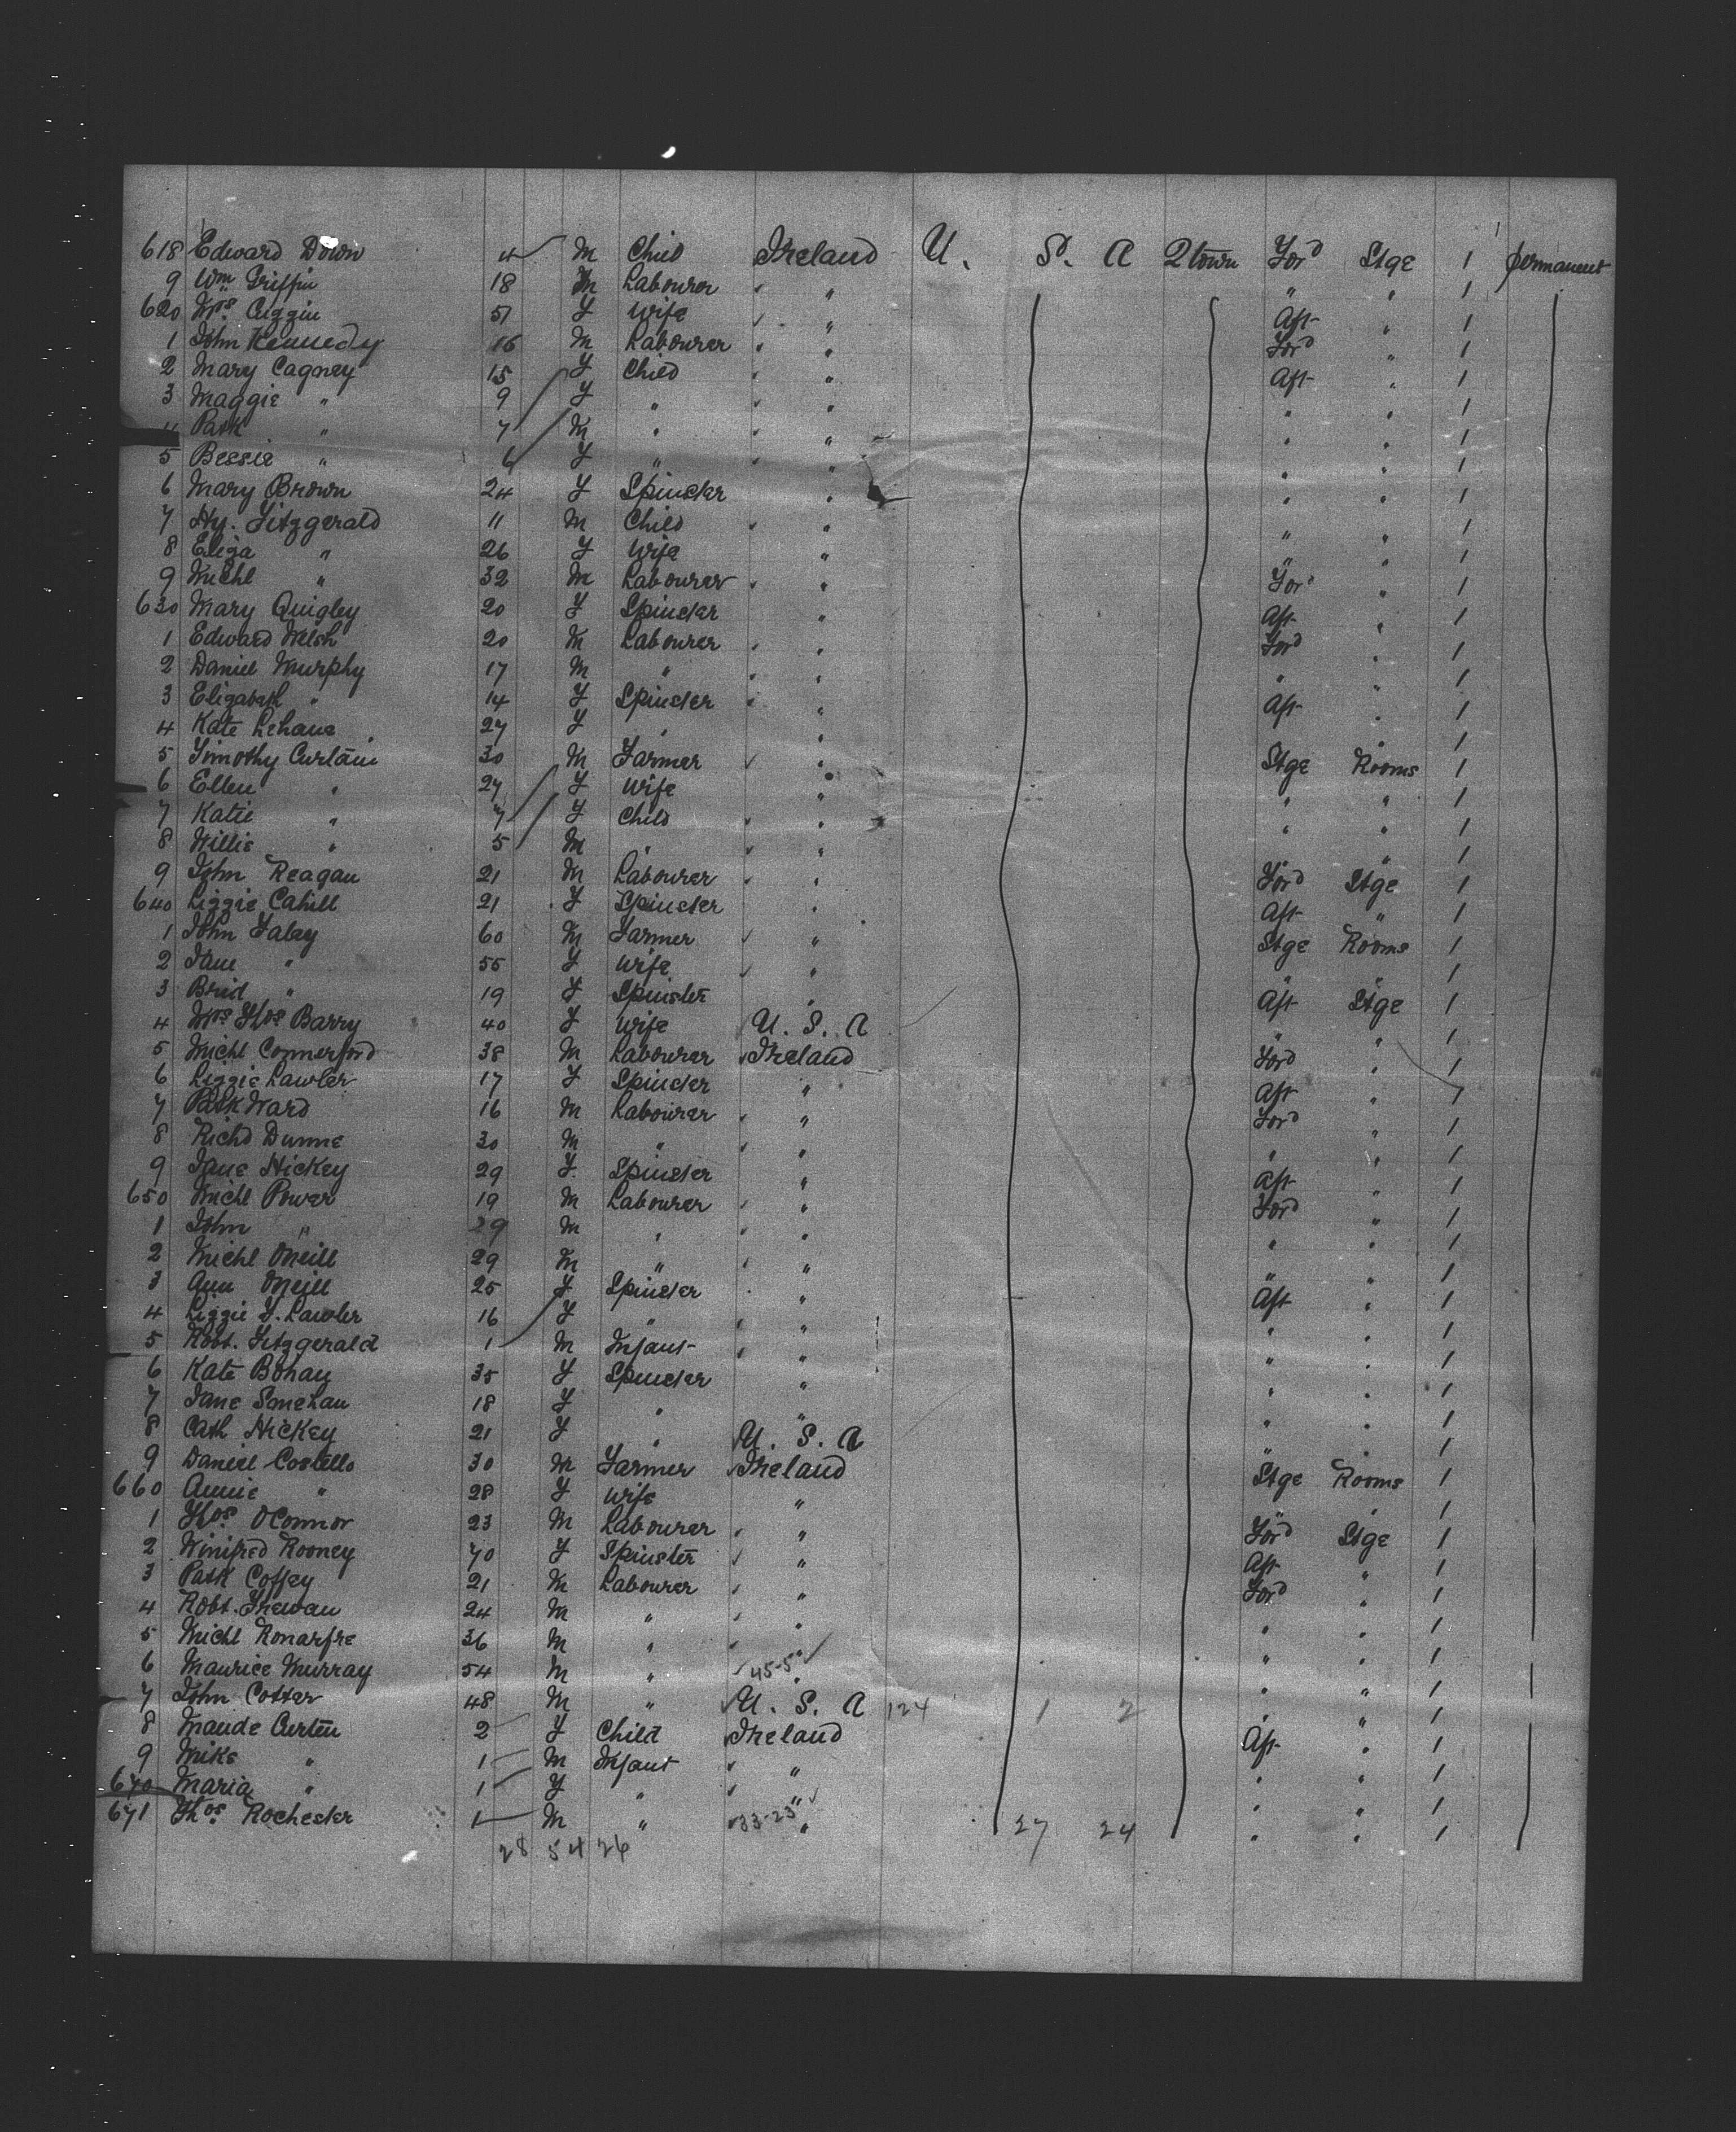 618 Edward Down 4 M Child Ireland U. S. A Qtown Ford Stge 1 permanent
9 Wm Griffin 18 M Labourer " " " 1
620 Mrs Cuggin 51 F Wife " Aft " 1
1 John Kennedy 16 M Labourer " Ford " 1
2 Mary Cagney 15 F Child " Aft " 1
3 Maggie " 9 F " " " " 1
4 Patk " 7 M " " " " 1
5 Bessie " 6 F " " " " 1
6 Mary Brown 24 F Spinster " " " 1
7 Hy. Fitzgerald 11 M Child " " " 1
8 Eliza " 26 F Wife " " " 1
9 Michl " 32 M Labourer " Ford " 1
630 Mary Quigley 20 F Spinster " Aft " 1
1 Edward Welsh 20 M Labourer " Ford " 1
2 Daniel Murphy 17 M " " " " 1
3 Elizabeth " 14 F Spinster " Aft " 1
4 Kate Lehane 27 F " " " " 1
5 Timothy Curtain 30 M Farmer " Stge Rooms 1
6 Ellen " 27 F Wife " " " 1
7 Katie " 7 F Child " " " 1
8 Willie " 5 M " " " " 1
9 John Reagan 21 M Labourer " Ford Stge 1
640 Lizzie Cahill 21 F Spinster " Aft " 1
1 John Faley 60 M Farmer " Stge Rooms 1
2 Jane " 55 F Wife " " " 1
3 Brid " 19 F Spinster " Aft Stge 1
4 Mrs Thos Barry 40 F Wife U. S. A " " 1
5 Michl Commerford 38 M Labourer Ireland Ford " 1
6 Lizzie Lawler 17 F Spinster " Aft " 1
7 Patk Ward 16 M Labourer " Ford " 1
8 Richd Dunne 30 M " " " " 1
9 Jane Hickey 29 F Spinster " Aft " 1
650 Michl Power 19 M Labourer " Ford " 1
1 John " 29 M " " " " 1
2 Michl ONeill 29 M " " " " 1
3 Ann ONeill 25 F Spinster " Aft " 1
4 Lizzie F. Lawler 16 F " " " " 1
5 Robt. Fitzgerald 1 M Infant " " " 1
6 Kate Bohay 35 F Spinster " " " 1
7 Jane Smehan 18 F " " " " 1
8 Cath Hickey 21 F " U. S. A " " 1
9 Daniel Costello 30 M Farmer Ireland Stge Rooms 1
660 Annie " 28 F Wife " " " 1
1 Thos OConnor 23 M Labourer " Ford Stge 1
2 Winifred Rooney 70 F Spinster " Aft " 1
3 Patk Coffey 21 M Labourer " Ford " 1
4 Robt. 24 M " " " " 1
5 Michl 36 M " " " " 1
6 Maurice Murray 54 M " 45-5 " " " 1
7 John Cotter 48 M " U. S. A 124 1 2 " " 1
8 Maude Curten 2 F Child Ireland Aft " 1
9 Mike " 1 M Infant " " " 1
670 Maria " 1 F " " " " 1
671 Thos Rochester 1 M " 33-23 " 27 24 " " 1
28 54 26